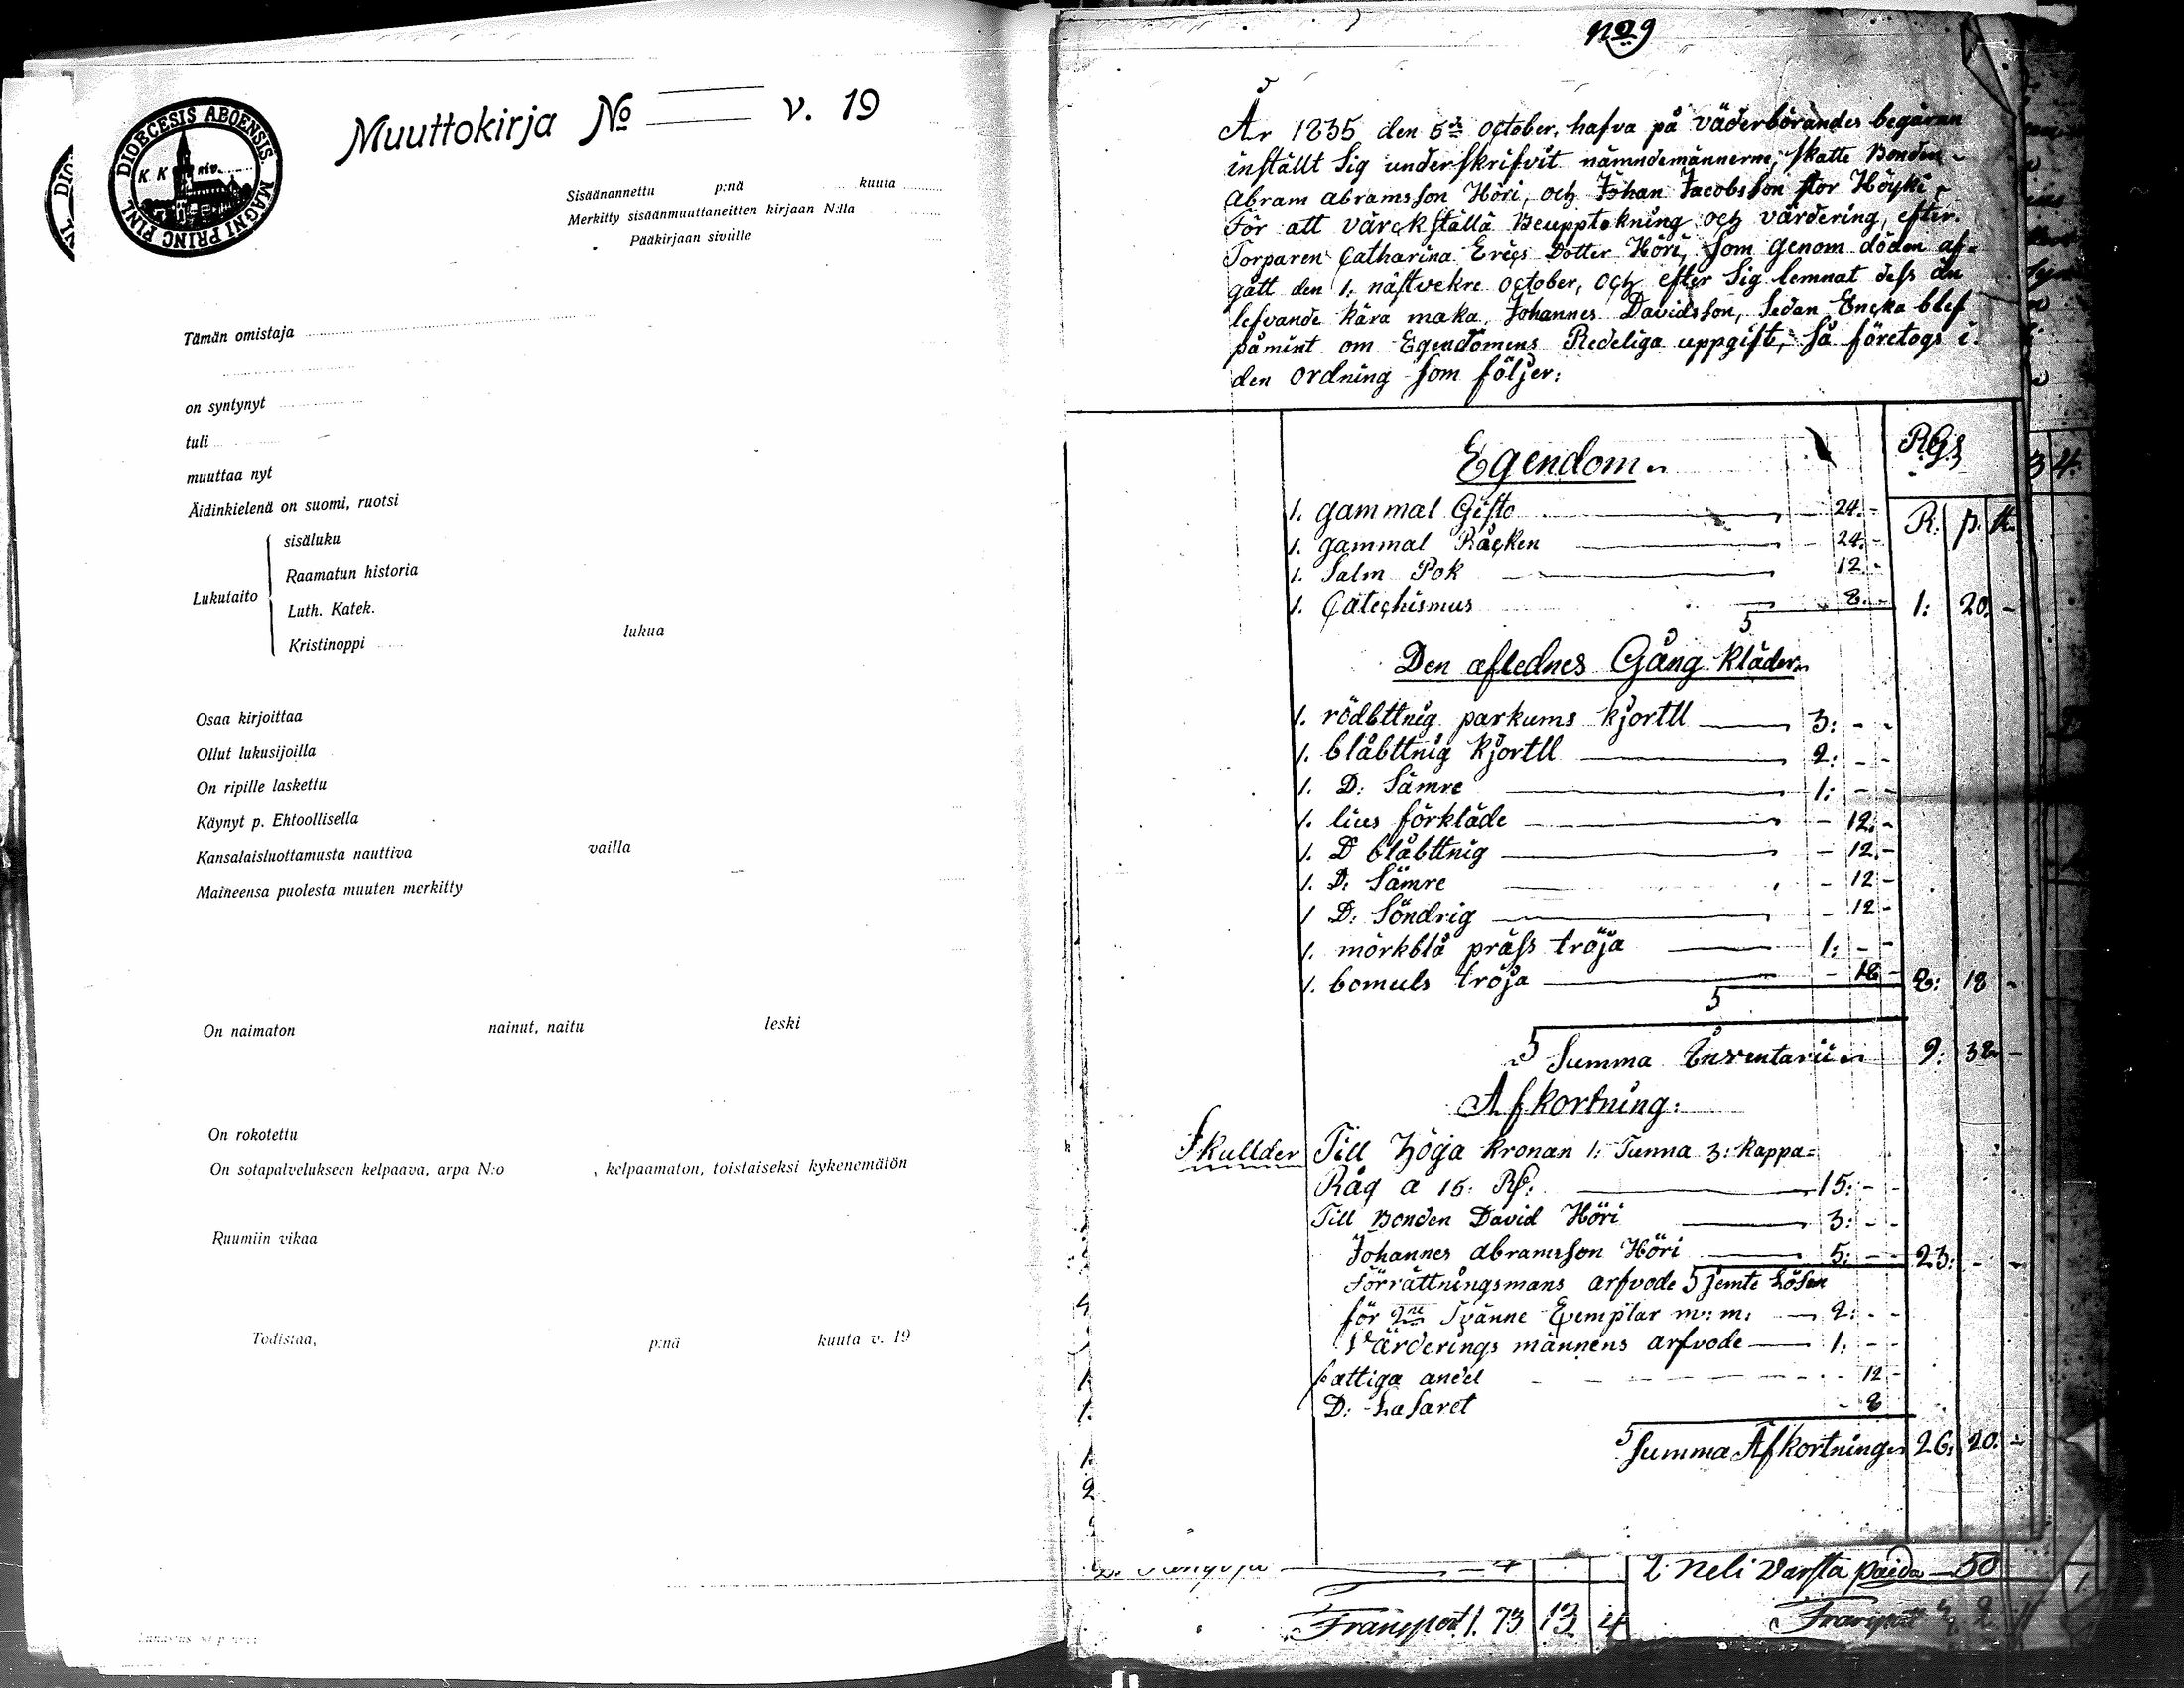 DIOECESIS ABOENSIS MAGNI PRINC FINL
K. K
Muuttokirja No v. 19
Sisäänannettu p:nä kuuta
Merkitty sisäänmuuttaneitten kirjaan N:lla
Pääkirjaan sivulle
Tämän omistaja
on syntynyt
tuli
muuttaa nyt
Äidinkielenä on suomi, ruotsi
Lukutaito
sisäluku
Raamatun historia
Luth. Katek.
Kristinoppi lukua
Osaa kirjoittaa
Ollut lukusijoilla
On ripille laskettu
Käynyt p. Ehtoollisella
Kansalaisluottamusta nauttiva vailla
Maineensa puolesta muuten merkitty
On naimaton nainut, naitu leski
On rokotettu
On sotapalvelukseen kelpaava, arpa N:o , kelpaamaton, toistaiseksi kykenemätön
Ruumiin vikaa
Todistaa, p:nä kuuta v. 19
No 9
År 1835 den 5te October, hafva på väderbörandes begäran
inställt Sig underskrifvit nämndemännerne, Skatte Bonden
Abram Abramsson Höri, och Johan Jacobsson stor Höyki
För att värckställä Beupptekning och värdering, efter
Torparen Catharina Erics Dotter Höri, Som genom döden af=
gått den 1. nästvekre October, och efter Sig lemnat dess än
lefvande kära maka, Johannes Davidsson, Sedan Encka blef
påmint om Egendomens Redeliga uppgift, Så företogs i
den Ordning Som följer:
Egendom
R. p. K.
1. gammal Gisto 24. -
1. gammal Räcken 24. -
1. Salm Pok 12. -
1. Catechismus 8. - 1: 20. -
Den aflednes Gång kläder
1. rödbttnig parkums kjortll 3: - -
1. blåbttnig kjortll 2: - -
1. D: Sämre 1: - -
1. lius förkläde - 12. -
1. D blåbttnig - 12. -
1. D. Sämre - 12 -
1 D: Söndrig - 12 -
1. mörkblå präss tröja 1: - -
1. bomuls tröja - 18 - 8: 18 -
Summa Inventarii 9: 38 -
Afkortning:
Skullder Till Höga kronan 1: Tunna 3: kappa=
Råg a 15: Rß: 15: - -
Till Bonden David Höri 3: - -
Johannes Abramsson Höri 5: - - 23: - -
Förrättningsmans arfvode jemte Lösen
för 2ne Tvänne Exemplar m: m: 2: - -
Värderings männens arfvode 1: - -
fattiga andel 12 -
D: LaSaret - 8
Summa Afkortningen 26: 20. -
2. Neli Varsta paida 50
Transport 1. 73 13 4
Transport